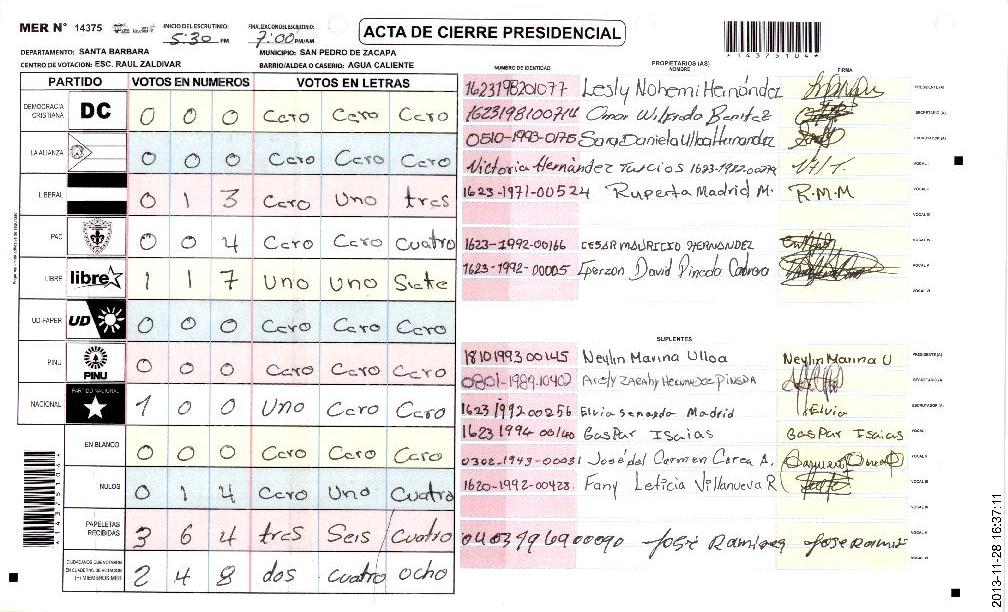 MER N° 14375 INICIO DEL ESCRUTINIO: 5:30 PM FINALIZACION DEL ESCRUTINIO: 7:00 PM/AM
ACTA DE CIERRE PRESIDENCIAL
*14375104*
DEPARTAMENTO: SANTA BARBARA MUNICIPIO: SAN PEDRO DE ZACAPA
CENTRO DE VOTACION: ESC. RAUL ZALDIVAR BARRIO/ALDEA O CASERIO: AGUA CALIENTE
PARTIDO VOTOS EN NUMEROS VOTOS EN LETRAS
DEMOCRACIA CRISTIANA DC 0 0 0 Cero Cero Cero
LA ALIANZA 0 0 0 Cero Cero Cero
LIBERAL 0 1 3 Cero Uno tres
PAC 0 0 4 Cero Cero Cuatro
LIBRE libre 1 1 7 Uno Uno Siete
UD-FAPER UD 0 0 0 Cero Cero Cero
PINU PINU 0 0 0 Cero Cero Cero
NACIONAL PARTIDO NACIONAL 1 0 0 Uno Cero Cero
EN BLANCO 0 0 0 Cero Cero Cero
NULOS 0 1 4 Cero Uno Cuatro
PAPELETAS RECIBIDAS 3 6 4 tres Seis Cuatro
CIUDADANOS QUE VOTARON EN CUADERNO DE VOTACION (+) MIEMBROS MER 2 4 8 dos cuatro ocho
*14375104*
PROPIETARIOS (AS)
NUMERO DE IDENTIDAD NOMBRE FIRMA
1623198201077 Lesly Nohemi Hernández PRESIDENTE(A)
1623198100714 Omar Wilfredo Benitez SECRETARIO (A)
0510-1993-0175 Sara Daniela Ulloa Hernandez ESCRUTADOR (A)
Victoria Hernández Turcios 1623-1982-00279 V/T. VOCAL I
1623-1971-00524 Ruperta Madrid M. R.M.M VOCAL II
VOCAL III
1623-1992-00166 CESAR MAURICIO HERNANDEZ VOCAL IV
1623-1992-00005 Eperzon David Pineda VOCAL V
VOCAL VI
SUPLENTES
1810199300145 Neylin Marina Ulloa Neylin Marina U PRESIDENTE(A)
0801-1989-10402 Arely ZARAHY HERNANDEZ PINEDA SECRETARIO (A)
1623199200256 Elvia Madrid Elvia ESCRUTADOR (A)
1623 1994 00140 GasPar Isaias GasPar Isaias VOCAL I
0302-1943-00031 José del Carmen Cerea A. VOCAL II
1620-1992-00428 Fany Leticia Villanueva R VOCAL III
VOCAL IV
José Ramirez Jose Ramirez VOCAL V
VOCAL VI
2013-11-28 16:37:11